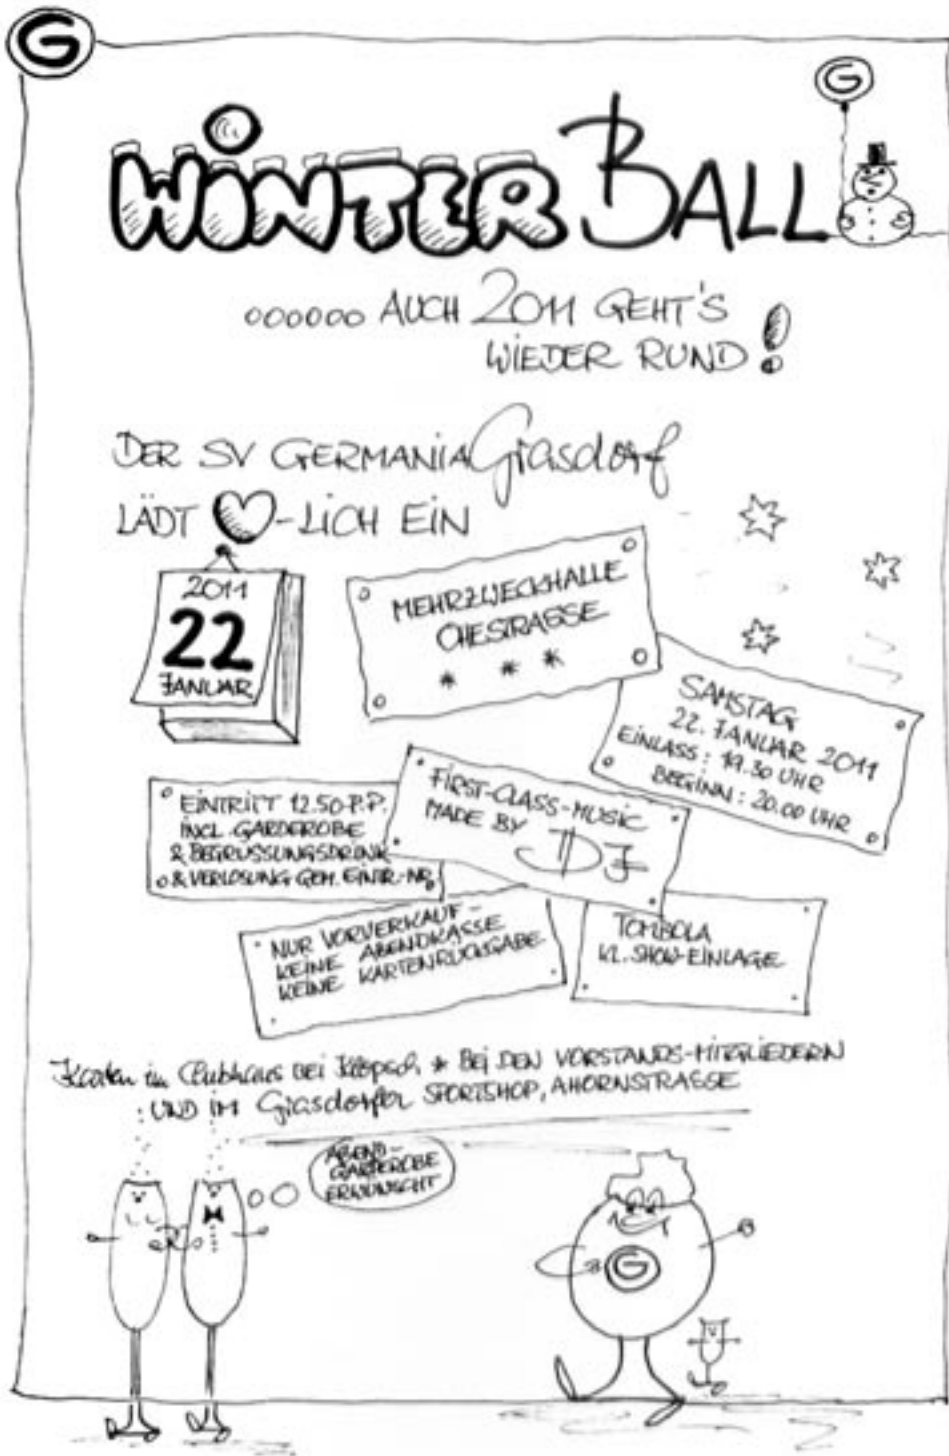 G
G
WINTER BALL
oooooo AUCH 2011 GEHT'S
WIEDER RUND!
DER SV GERMANIA Grasdorf
LÄDT -LICH EIN
2011
22
JANUAR
MEHRZWECKHALLE
OHESTRASSE
* * *
SAMSTAG
22. JANUAR 2011
EINLASS: 19.30 UHR
BEGINN: 20.00 UHR
EINTRITT 12.50 P.P.
INCL. GARDEROBE
& BEGRÜSSUNGSDRINK
& VERLOSUNG GEM. EINTR.-NR.
FIRST-CLASS-MUSIC
MADE BY DJ
NUR VORVERKAUF-
KEINE ABENDKASSE
KEINE KARTENRÜCKGABE
TOMBOLA
KL. SHOW-EINLAGE
Karten im Clubhaus bei * BEI DEN VORSTANDS-MITGLIEDERN
UND IM Grasdorfer SPORTSHOP, AHORNSTRASSE
ABEND-
GARDEROBE
ERWÜNSCHT
G